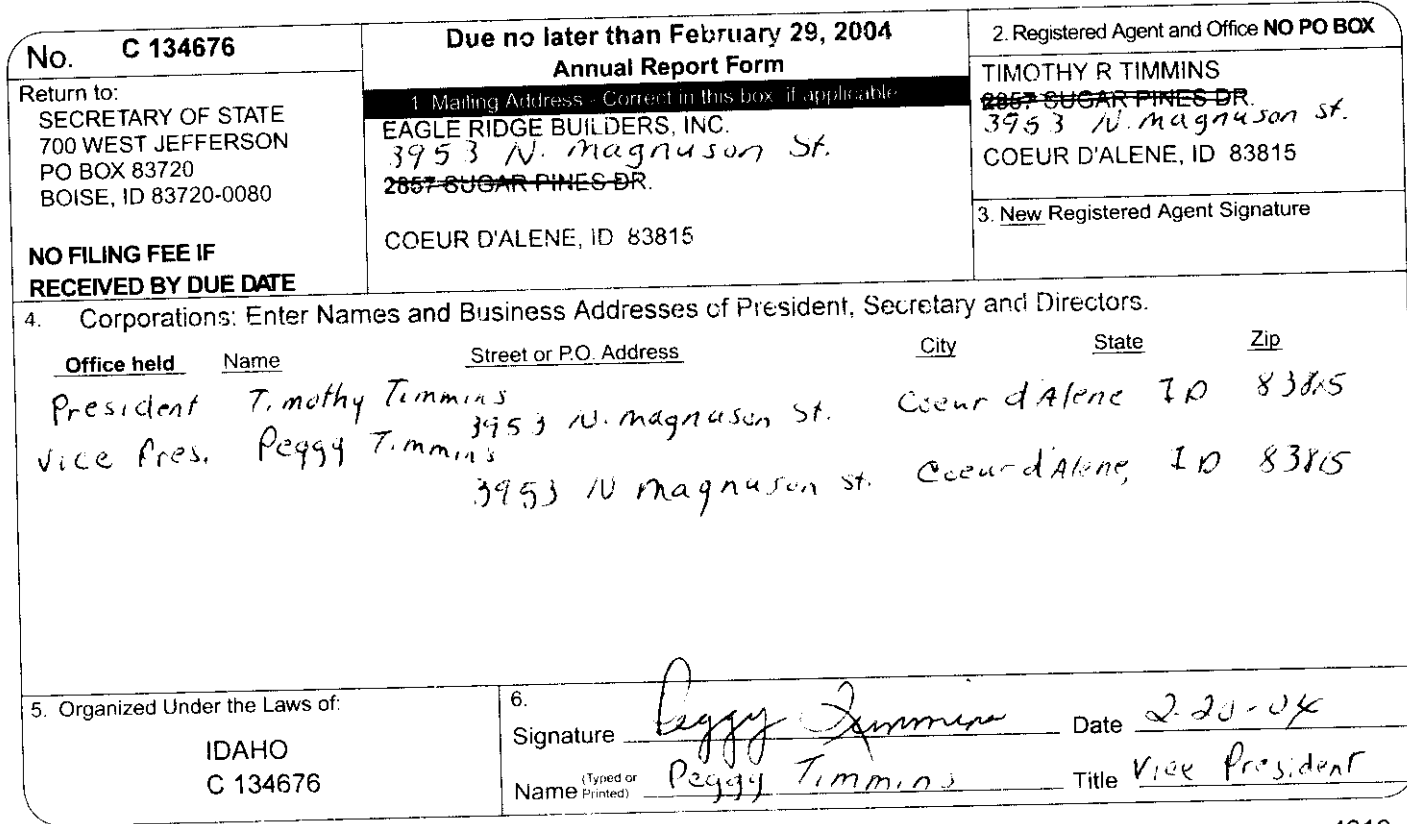 No. C 134676
Return to:
SECRETARY OF STATE
700 WEST JEFFERSON
PO BOX 83720
BOISE, ID 83720-0080
NO FILING FEE IF
RECEIVED BY DUE DATE
Due no later than February 29, 2004
Annual Report Form
1 Mailing Address - Correct in this box if applicable
EAGLE RIDGE BUILDERS, INC.
3953 N. Magnuson St.
2857 SUGAR PINES DR.
COEUR D'ALENE, ID 83815
2. Registered Agent and Office NO PO BOX
TIMOTHY R TIMMINS
2857 SUGAR PINES DR.
3953 N. Magnuson St.
COEUR D'ALENE, ID 83815
3. New Registered Agent Signature
4. Corporations: Enter Names and Business Addresses of President, Secretary and Directors.
Office held Name Street or P.O. Address City State Zip
President Timothy Timmins 3953 N. Magnuson St. Coeur d'Alene ID 83815
Vice Pres. Peggy Timmins 3953 N Magnuson St. Coeur d'Alene, ID 83815
5. Organized Under the Laws of:
IDAHO
C 134676
6.
Signature Peggy Timmins Date 2-20-04
Name (Typed or Printed) Peggy Timmins Title Vice President